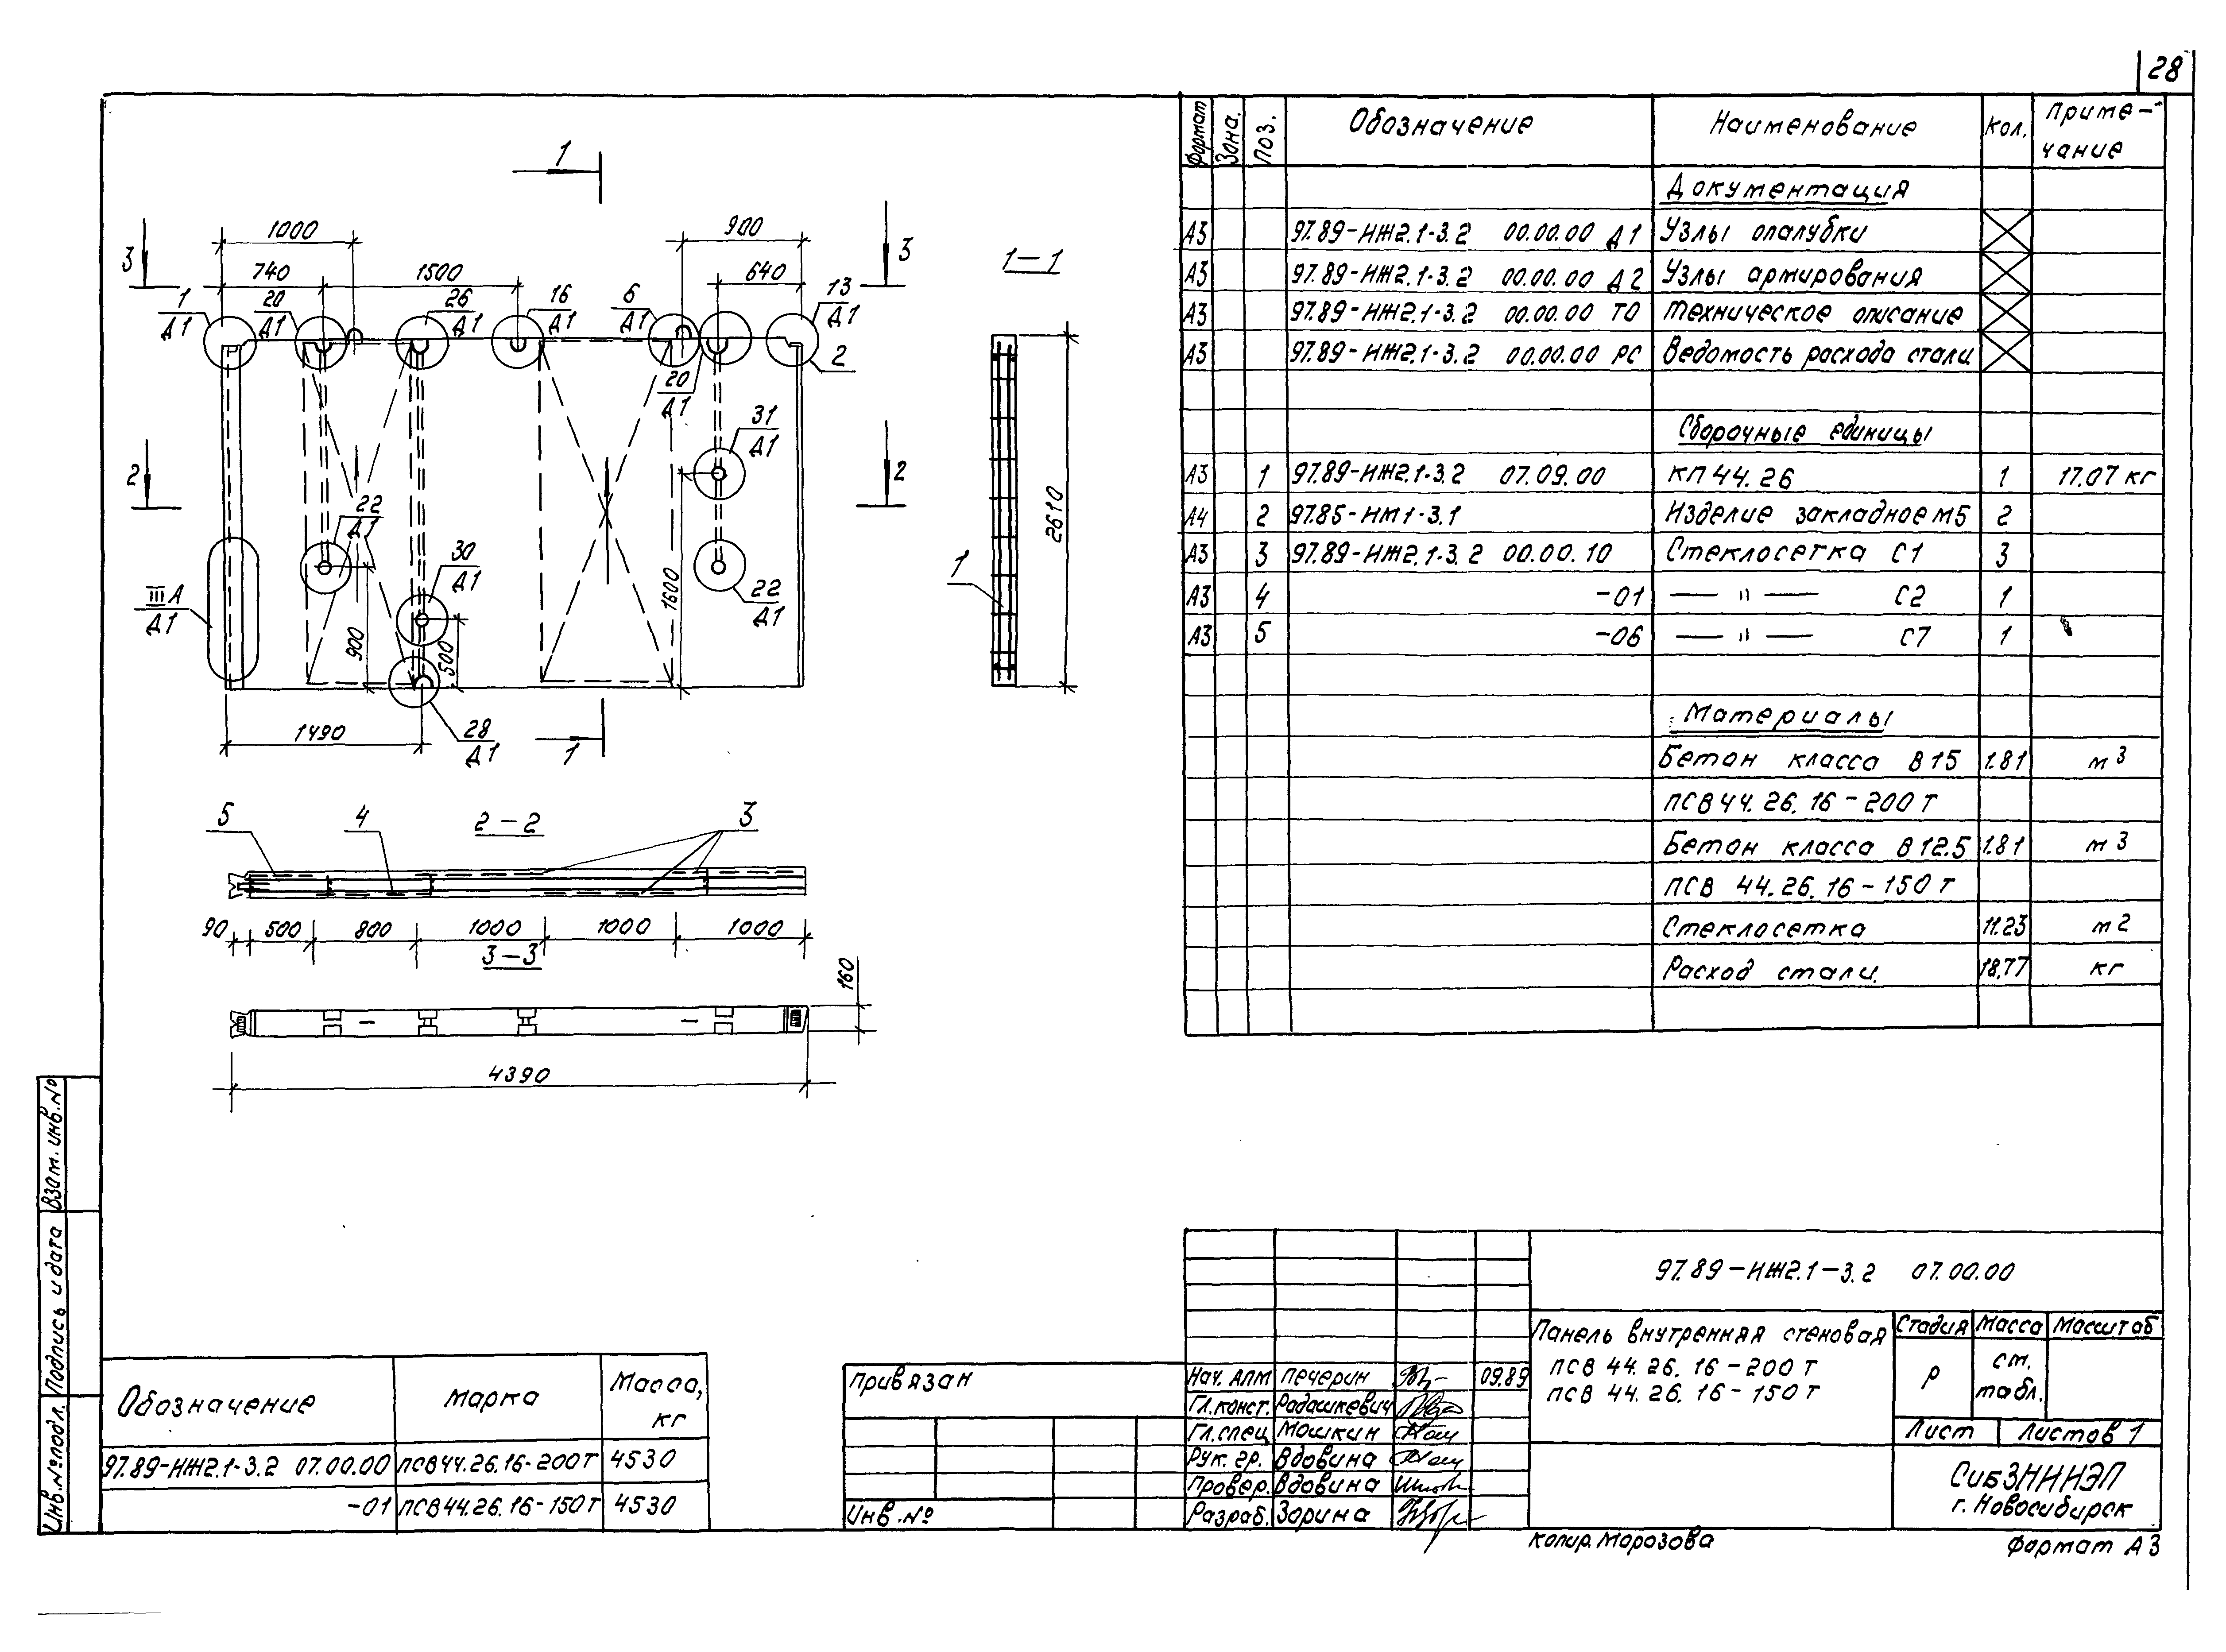 28
1
3
1000
900
3
740
1500
640
1
Д1
20
Д1
26
Д1
16
Д1
6
Д1
13
Д1
2
20
Д1
31
Д1
2
2
22
Д1
30
Д1
22
Д1
III А
Д1
900
500
1600
28
Д1
1490
1
1-1
1
2610
5
4
2-2
3
90
500
800
1000
1000
1000
3-3
160
4390
Формат
Зона.
Поз.
Обозначение
Наименование
Кол.
Приме-
чание
Документация
А3 97.89-ИЖ2.1-3.2 00.00.00 Д1 Узлы опалубки
А3 97.89-ИЖ2.1-3.2 00.00.00 Д2 Узлы армирования
А3 97.89-ИЖ2.1-3.2 00.00.00 ТО Техническое описание
А3 97.89-ИЖ2.1-3.2 00.00.00 РС Ведомость расхода стали
Сборочные единицы
А3 1 97.89-ИЖ2.1-3.2 07.09.00 КП 44.26 1 17.07 кг
А4 2 97.85-ИМ1-3.1 Изделие закладное М5 2
А3 3 97.89-ИЖ2.1-3.2 00.00.10 Стеклосетка С1 3
А3 4 -01 — " — С2 1
А3 5 -06 — " — С7 1
Материалы
Бетон класса В15 1.81 м3
ПСВ 44.26.16-200Т
Бетон класса В12.5 1.81 м3
ПСВ 44.26.16-150Т
Стеклосетка 11.23 м2
Расход стали. 18.77 кг
97.89-ИЖ2.1-3.2 07.00.00
Панель внутренняя стеновая
ПСВ 44.26.16-200Т
ПСВ 44.26.16-150Т
Стадия Масса Масштаб
Р
ст.
табл.
Лист Листов 1
СибЗНИИЭП
г. Новосибирск
Нач. АПМ Печерин 09.89
Гл.конст. Радашкевич
Гл.спец Мошкин
Рук. гр. Вдовина
Провер. Вдовина
Разраб. Зорина
Привязан
Инв.№
Обозначение
Марка
Масса,
кг
97.89-ИЖ2.1-3.2 07.00.00 ПСВ44.26.16-200Т 4530
-01 ПСВ44.26.16-150Т 4530
Взам. инв.№
Подпись и дата
Инв.№подл.
Копир. Морозова
Формат А3